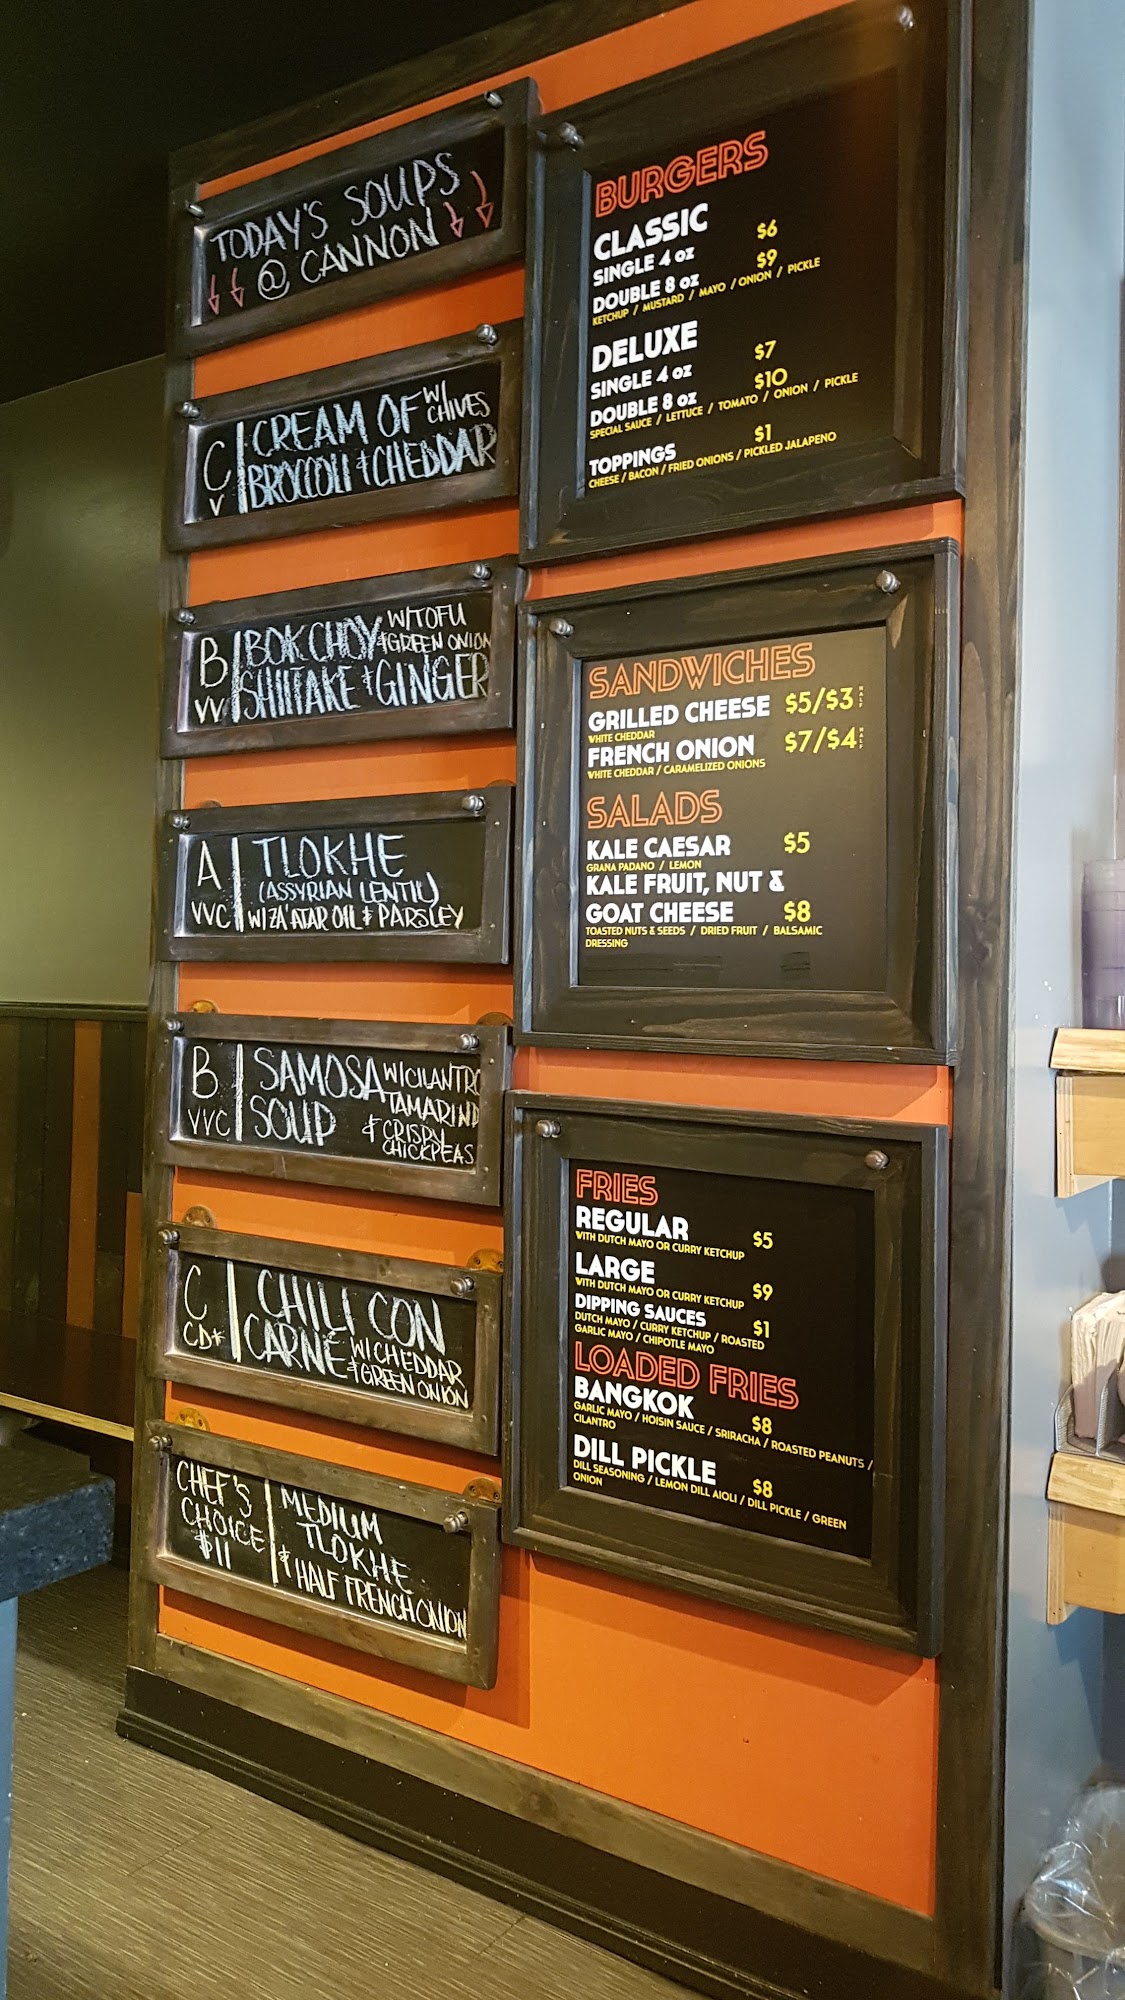 TODAY'S SOUPS
@ CANNON
C
V
CREAM OF W/ CHIVES
BROCCOLI & CHEDDAR
B
VV
BOK CHOY W/ TOFU & GREEN ONION
SHIITAKE & GINGER
A
VVC
TLOKHE
(ASSYRIAN LENTIL)
W/ ZA'ATAR OIL & PARSLEY
B
VVC
SAMOSA SOUP
W/ CILANTRO
TAMARIND
& CRISPY
CHICKPEAS
C
CD*
CHILI CON
CARNE W/ CHEDDAR
& GREEN ONION
CHEF'S
CHOICE
$11
MEDIUM
TLOKHE
& HALF FRENCH ONION
BURGERS
CLASSIC
SINGLE 4 oz $6
DOUBLE 8 oz $9
KETCHUP / MUSTARD / MAYO / ONION / PICKLE
DELUXE
SINGLE 4 oz $7
DOUBLE 8 oz $10
SPECIAL SAUCE / LETTUCE / TOMATO / ONION / PICKLE
TOPPINGS $1
CHEESE / BACON / FRIED ONIONS / PICKLED JALAPENO
SANDWICHES
GRILLED CHEESE $5/$3 HALF
WHITE CHEDDAR
FRENCH ONION $7/$4 HALF
WHITE CHEDDAR / CARAMELIZED ONIONS
SALADS
KALE CAESAR $5
GRANA PADANO / LEMON
KALE FRUIT, NUT &
GOAT CHEESE $8
TOASTED NUTS & SEEDS / DRIED FRUIT / BALSAMIC
DRESSING
FRIES
REGULAR $5
WITH DUTCH MAYO OR CURRY KETCHUP
LARGE $9
WITH DUTCH MAYO OR CURRY KETCHUP
DIPPING SAUCES $1
DUTCH MAYO / CURRY KETCHUP / ROASTED
GARLIC MAYO / CHIPOTLE MAYO
LOADED FRIES
BANGKOK $8
GARLIC MAYO / HOISIN SAUCE / SRIRACHA / ROASTED PEANUTS /
CILANTRO
DILL PICKLE $8
DILL SEASONING / LEMON DILL AIOLI / DILL PICKLE / GREEN
ONION